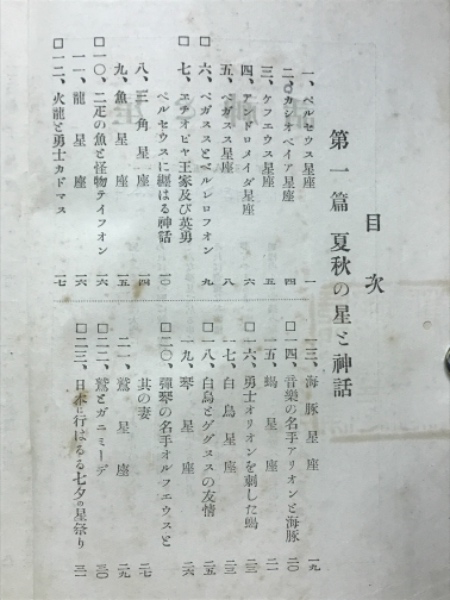 目次
第一篇 夏秋の星と神話
一、ペルセウス星座 一
二、カシオペイア星座 四
三、ケフエウス星座 五
四、アンドロメイダ星座 六
五、ペガスス星座 八
□六、ペガススとベルレロフオン 九
□七、エチオピヤ王家及び英勇
ペルセウスに纒はる神話 一〇
八、三角星座 一四
九、魚星座 一五
□一〇、二疋の魚と怪物テイフオン 一六
一一、龍星座 一六
□一二、火龍と勇士カドマス 一七
一三、海豚星座 一九
□一四、音樂の名手アリオンと海豚 二〇
一五、蝎星座 二一
□一六、勇士オリオンを刺した蝎 二三
一七、白鳥星座 二三
□一八、白鳥とググヌスの友情 二五
一九、琴星座 二六
□二〇、彈琴の名手オルフエウスと
其の妻 二七
二一、鷲星座 二九
□二二、鷲とガニミーデ 三〇
□二三、日本に行はるる七夕の星祭り 三一